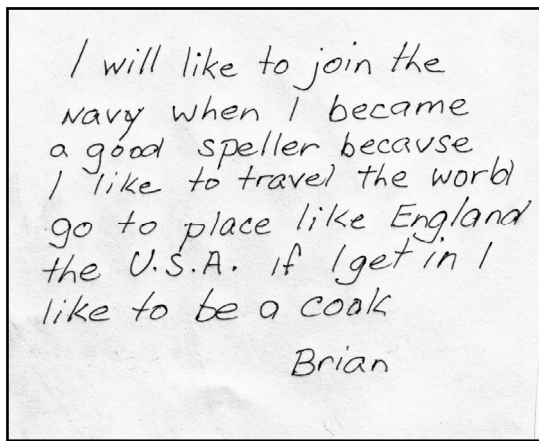 I will like to join the
Navy when I became
a good speller because
I like to travel the world
go to place like England
the U.S.A. if I get in I
like to be a cook
Brian